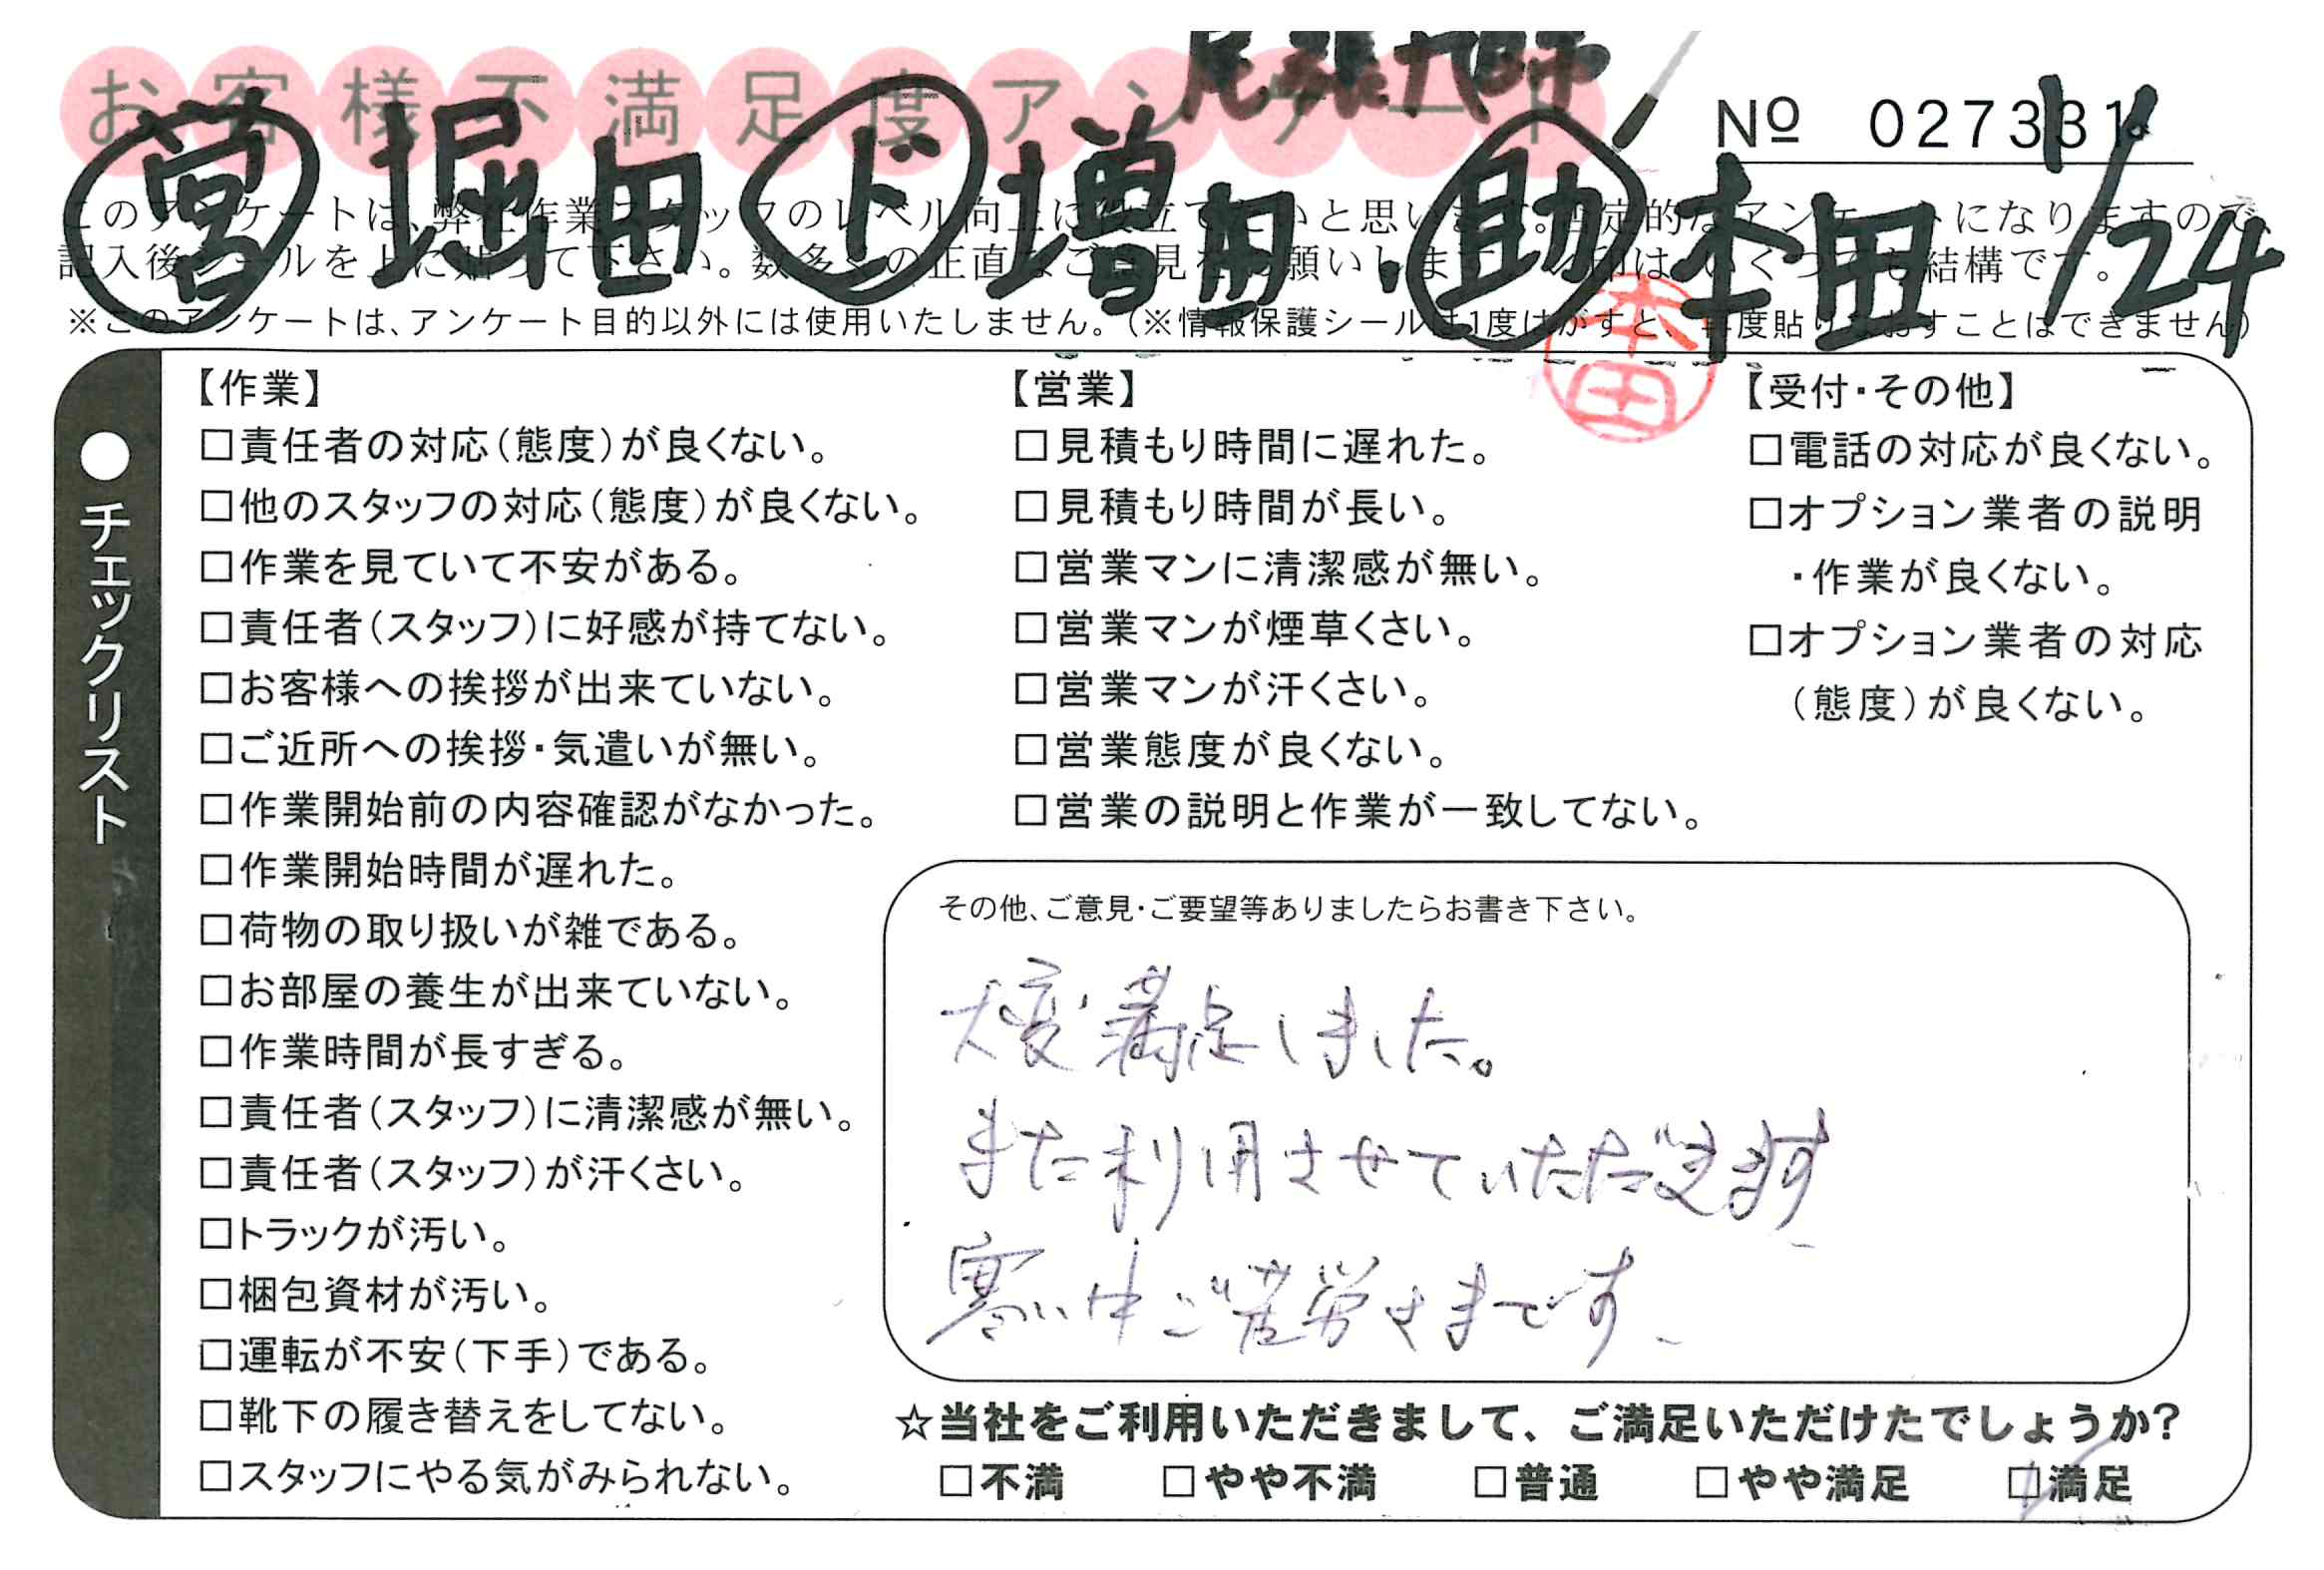 お客様不満足度アンケート
尾張大
№ 027331
1/24
営 堀田 ド 増田 . 助 本田
このアンケートは、弊社作業スタッフのレベル向上に役立てたいと思います。否定的なアンケートになりますので、
記入後シールを上に貼って下さい。数多くの正直なご意見をお願いします。 はいくつでも結構です。
※このアンケートは、アンケート目的以外には使用いたしません。(※情報保護シールは1度はがすと、再度貼りなおすことはできません)
本田
●チェックリスト
【作業】
□責任者の対応(態度)が良くない。
□他のスタッフの対応(態度)が良くない。
□作業を見ていて不安がある。
□責任者(スタッフ)に好感が持てない。
□お客様への挨拶が出来ていない。
□ご近所への挨拶・気遣いが無い。
□作業開始前の内容確認がなかった。
□作業開始時間が遅れた。
□荷物の取り扱いが雑である。
□お部屋の養生が出来ていない。
□作業時間が長すぎる。
□責任者(スタッフ)に清潔感が無い。
□責任者(スタッフ)が汗くさい。
□トラックが汚い。
□梱包資材が汚い。
□運転が不安(下手)である。
□靴下の履き替えをしてない。
□スタッフにやる気がみられない。
【営業】
□見積もり時間に遅れた。
□見積もり時間が長い。
□営業マンに清潔感が無い。
□営業マンが煙草くさい。
□営業マンが汗くさい。
□営業態度が良くない。
□営業の説明と作業が一致してない。
【受付・その他】
□電話の対応が良くない。
□オプション業者の説明
・作業が良くない。
□オプション業者の対応
(態度)が良くない。
その他、ご意見・ご要望等ありましたらお書き下さい。
大変満足しました。
また利用させていただきます
寒い中ご苦労さまです、
☆当社をご利用いただきまして、ご満足いただけたでしょうか?
□不満 □やや不満 □普通 □やや満足 ☑満足